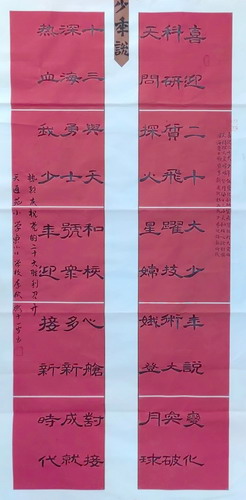 少年說
喜迎二十大少年說變化
科研質飛躍技術大突破
天問探火星嫦娥登月球
十三與天和核心艙對接
深海勇士號眾多新成就
熱血我少年迎接新時代
熱烈慶祝黨的二十大勝利召開
天通苑小學東小口學校